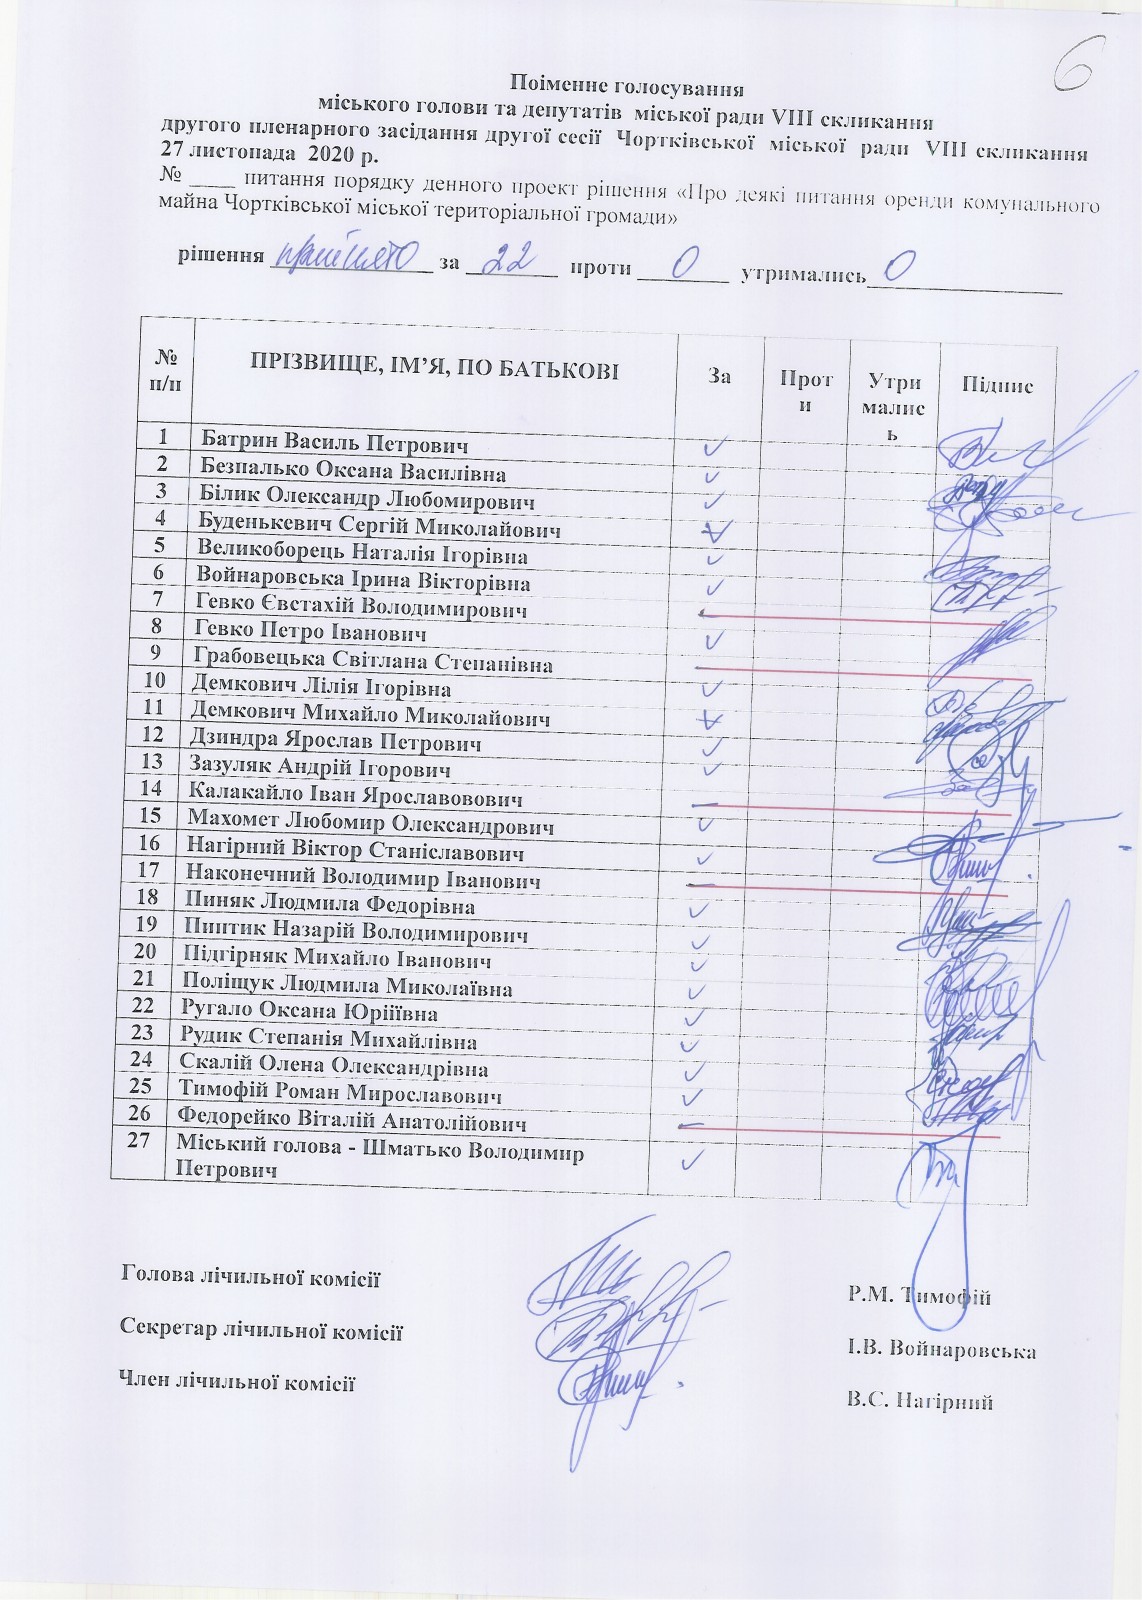 6
Поіменне голосування
міського голови та депутатів міської ради VIII скликання
другого пленарного засідання другої сесії Чортківської міської ради VIII скликання
27 листопада 2020 р.
№ ____ питання порядку денного проект рішення «Про деякі питання оренди комунального
майна Чортківської міської територіальної громади»
рішення прийнято за 22 проти 0 утримались 0
№ п/п ПРІЗВИЩЕ, ІМ’Я, ПО БАТЬКОВІ За Проти Утримались Підпис
1 Батрин Василь Петрович ✓
2 Безпалько Оксана Василівна ✓
3 Білик Олександр Любомирович ✓
4 Буденькевич Сергій Миколайович ✓
5 Великоборець Наталія Ігорівна ✓
6 Войнаровська Ірина Вікторівна ✓
7 Гевко Євстахій Володимирович –
8 Гевко Петро Іванович ✓
9 Грабовецька Світлана Степанівна
10 Демкович Лілія Ігорівна ✓
11 Демкович Михайло Миколайович ✓
12 Дзиндра Ярослав Петрович ✓
13 Зазуляк Андрій Ігорович ✓
14 Калакайло Іван Ярославовович –
15 Махомет Любомир Олександрович ✓
16 Нагірний Віктор Станіславович ✓
17 Наконечний Володимир Іванович –
18 Пиняк Людмила Федорівна ✓
19 Пиптик Назарій Володимирович ✓
20 Підгірняк Михайло Іванович ✓
21 Поліщук Людмила Миколаївна ✓
22 Ругало Оксана Юріїївна ✓
23 Рудик Степанія Михайлівна ✓
24 Скалій Олена Олександрівна ✓
25 Тимофій Роман Мирославович ✓
26 Федорейко Віталій Анатолійович –
27 Міський голова - Шматько Володимир ✓
Петрович
Голова лічильної комісії Р.М. Тимофій
Секретар лічильної комісії І.В. Войнаровська
Член лічильної комісії В.С. Нагірний